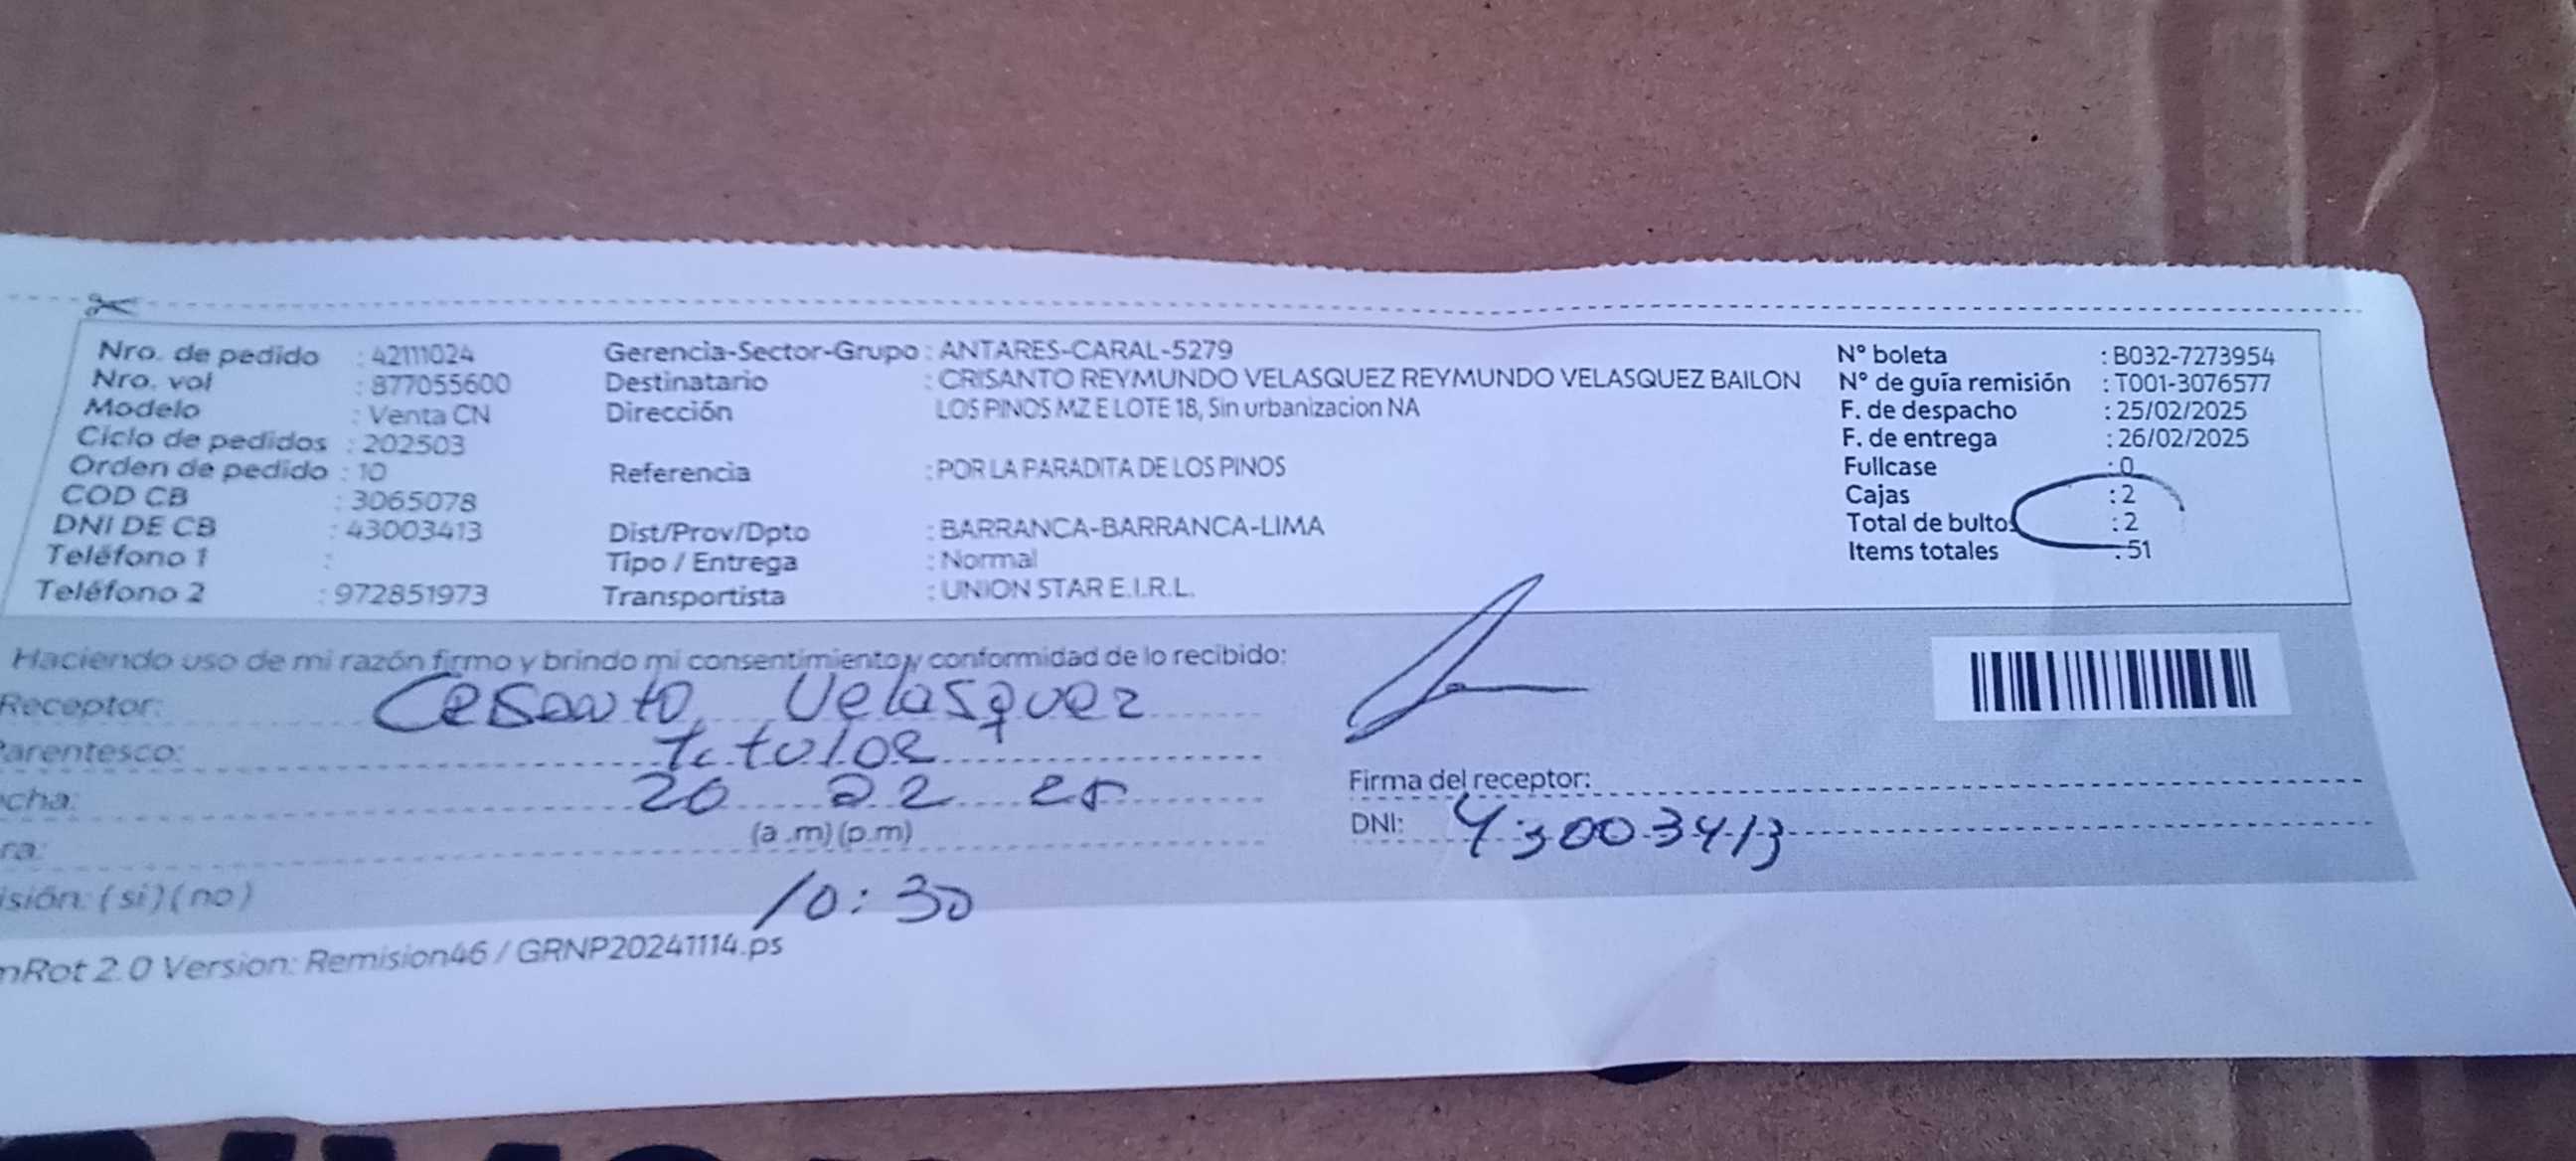 Nro. de pedido : 42111024
Nro. vol : 877055600
Modelo : Venta CN
Ciclo de pedidos : 202503
Orden de pedido : 10
COD CB : 3065078
DNI DE CB : 43003413
Teléfono 1 :
Teléfono 2 : 972851973
Gerencia-Sector-Grupo : ANTARES-CARAL-5279
Destinatario : CRISANTO REYMUNDO VELASQUEZ REYMUNDO VELASQUEZ BAILON
Dirección LOS PINOS MZ E LOTE 18, Sin urbanizacion NA
Referencia : POR LA PARADITA DE LOS PINOS
Dist/Prov/Dpto : BARRANCA-BARRANCA-LIMA
Tipo / Entrega : Normal
Transportista : UNION STAR E.I.R.L.
N° boleta : B032-7273954
N° de guía remisión : T001-3076577
F. de despacho : 25/02/2025
F. de entrega : 26/02/2025
Fullcase : 0
Cajas : 2
Total de bultos : 2
Items totales : 51
Haciendo uso de mi razón firmo y brindo mi consentimiento y conformidad de lo recibido:
Receptor: Velasquez
arentesco:
cha: 25
ra: (a .m) (p.m)
10:30
isión: ( si ) ( no )
Firma del receptor:
DNI: 43003413
nRot 2.0 Version: Remision46 / GRNP20241114.ps